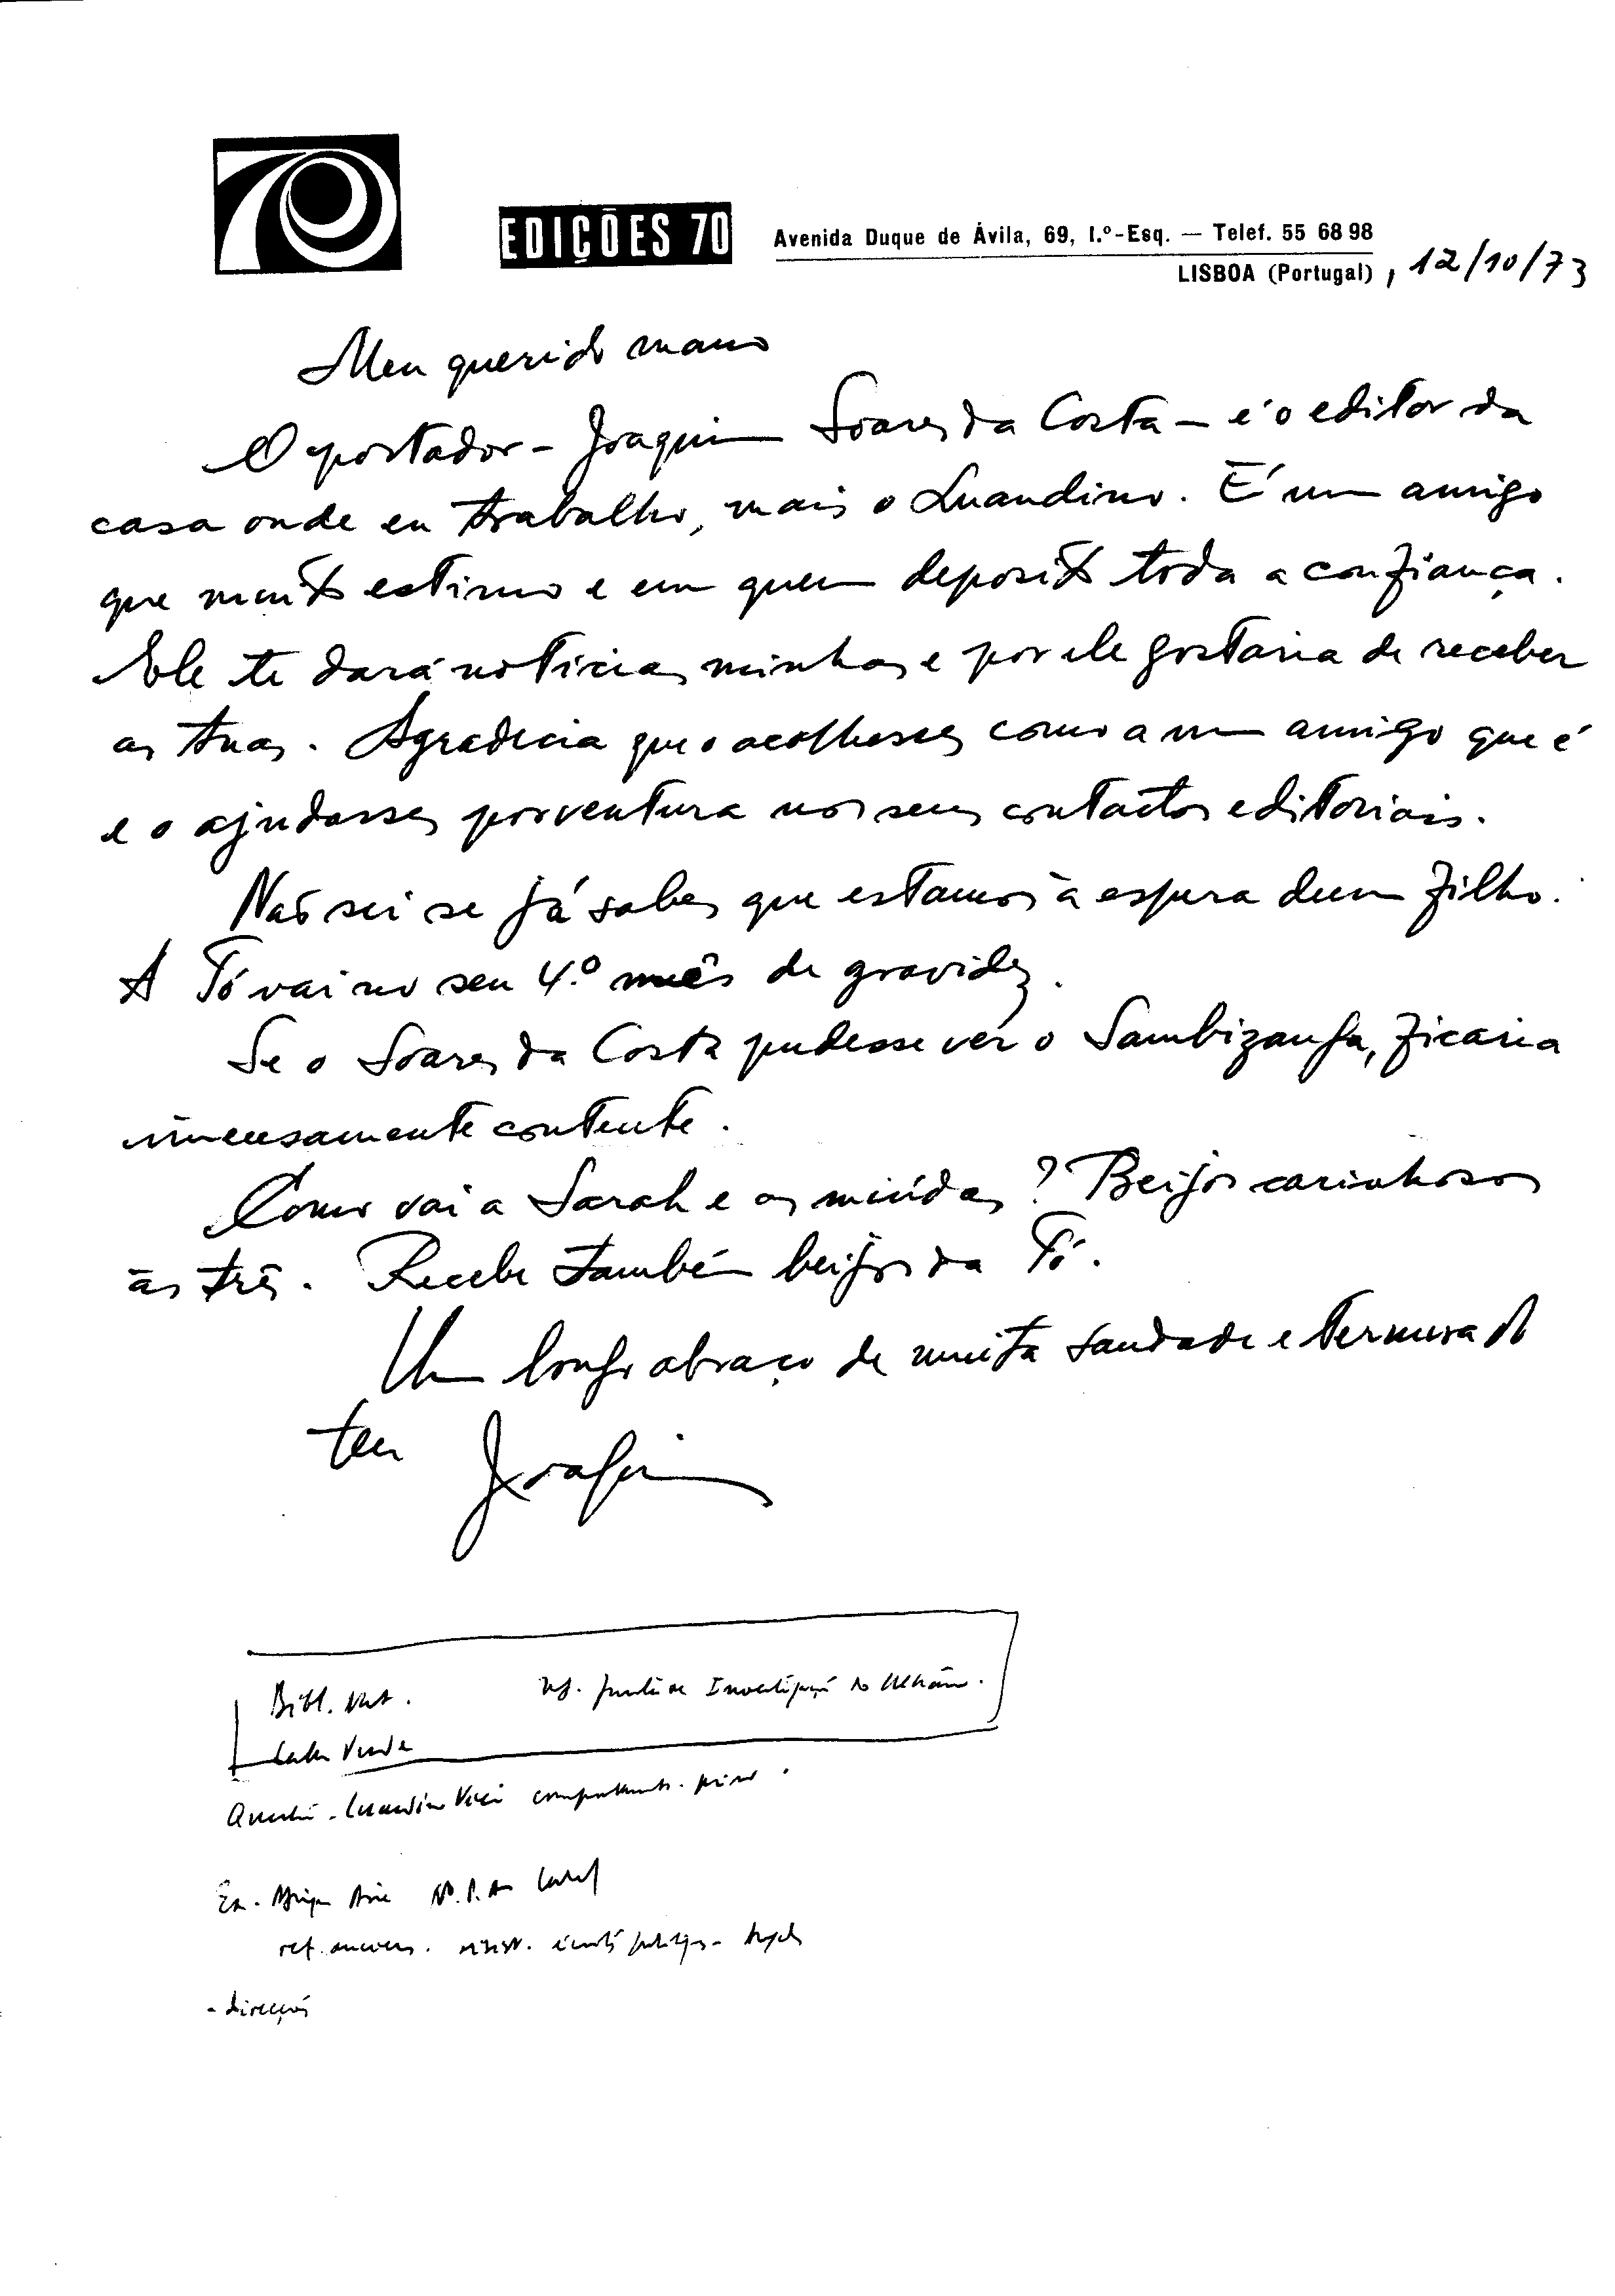 EDIÇÕES 70
Avenida Duque de Ávila, 69, 1.º-Esq. — Telef. 55 68 98
LISBOA (Portugal), 12/10/73
Meu querido mano
O portador - Joaquim Soares da Costa - é o editor da
casa onde eu trabalho, mais o Luandino. É um amigo
que muito estimo e em quem deposito toda a confiança.
Ele te dará notícias minhas e por ele gostaria de receber
as tuas. Agradecia que o acolhesses como a um amigo que é
e o ajudasses porventura nos seus contactos editoriais.
Não sei se já sabes que estamos à espera dum filho.
A Tó vai no seu 4.º mês de gravidez.
Se o Soares da Costa pudesse ver o Sambizanga, ficaria
imensamente contente.
Como vai a Sarah e as miúdas? Beijos carinhosos
às três. Recebe também beijos da Tó.
Um longo abraço de muita saudade e ternura do
teu Joaquim
Bibl. Nat.
Cabo Verde
Luandino
- direcção